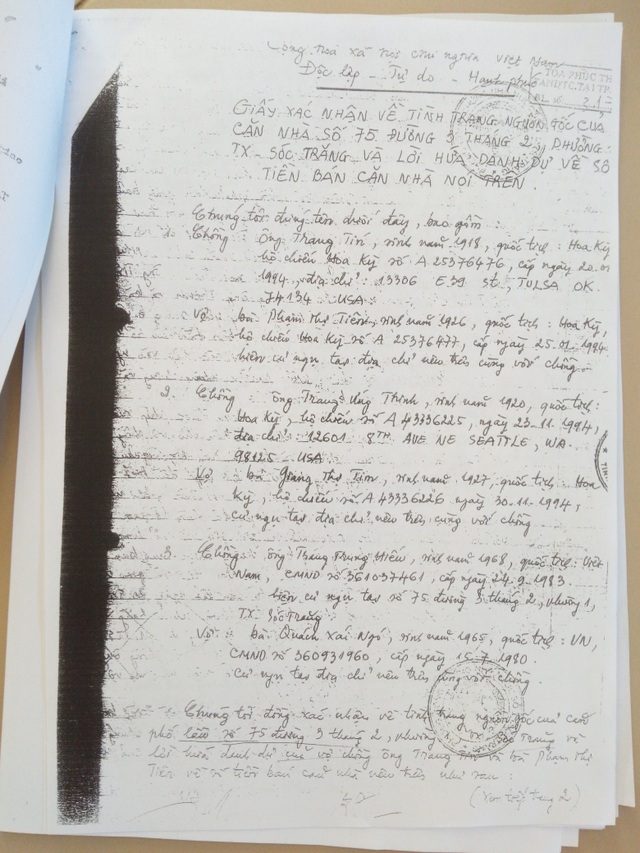 Cộng hoà xã hội chủ nghĩa Việt Nam
Độc lập - Tự do - Hạnh phúc
TÒA PHÚC TH
ANDTC.TẠI TP.
GIẤY XÁC NHẬN VỀ TÌNH TRẠNG NGUỒN GỐC CỦA
CĂN NHÀ SỐ 75 ĐƯỜNG 3 THÁNG 2, PHƯỜNG
TX. SÓC TRĂNG VÀ LỜI HỨA DANH DỰ VỀ SỐ
TIỀN BÁN CĂN NHÀ NÓI TRÊN.
Chúng tôi đứng tên dưới đây, bao gồm:
Chồng: ông Trang Tín, sinh năm 1918, quốc tịch: Hoa Kỳ
hộ chiếu Hoa Kỳ số A 25376476, cấp ngày 20.01
1994, địa chỉ: 13306 E 39 St, TULSA OK.
74134 USA.
Vợ: bà Phạm Thị Tiên, sinh năm 1926, quốc tịch: Hoa Kỳ,
hộ chiếu Hoa Kỳ số A 25376477, cấp ngày 25.01.1994
hiện cư ngụ tại địa chỉ nêu trên cùng với chồng.
2. Chồng: ông Trang Ung Thinh, sinh năm 1920, quốc tịch:
Hoa Kỳ, hộ chiếu số A 43336225, ngày 23.11.1994,
địa chỉ: 12601 8TH AVE NE SEATTLE, WA.
98125 USA.
Vợ: bà Giang Thị Tim, sinh năm 1927, quốc tịch: Hoa
Kỳ, hộ chiếu số A 43336226 ngày 30.11.1994,
cư ngụ tại địa chỉ nêu trên cùng với chồng
3. Chồng: ông Trang Trung Hiếu, sinh năm 1968, quốc tịch: Việt
Nam, CMND số 361037461, cấp ngày 24.9.1983.
hiện cư ngụ tại số 75 đường 3 tháng 2, phường 1,
TX. Sóc Trăng.
Vợ: bà Quách Xái Ngó, sinh năm 1965, quốc tịch: VN,
CMND số 360931960, cấp ngày 15.7.1980.
Cư ngụ tại địa chỉ nêu trên cùng với chồng.
Chúng tôi đồng xác nhận về tình trạng nguồn gốc của căn
phố lầu số 75 đường 3 tháng 2, phường Sóc Trăng và
lời hứa danh dự của vợ chồng ông Trang Tín và bà Phạm Thị
Tiên về số tiền bán căn nhà nêu trên như sau:
(Xem tiếp trang 2)